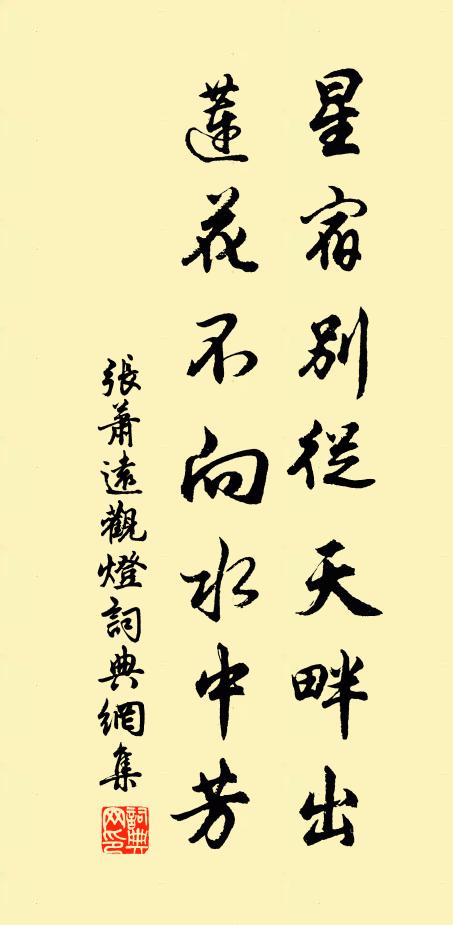 星宿別從天畔出
蓮花不向水中芳
張蕭遠觀燈詞典網集
詞典网印